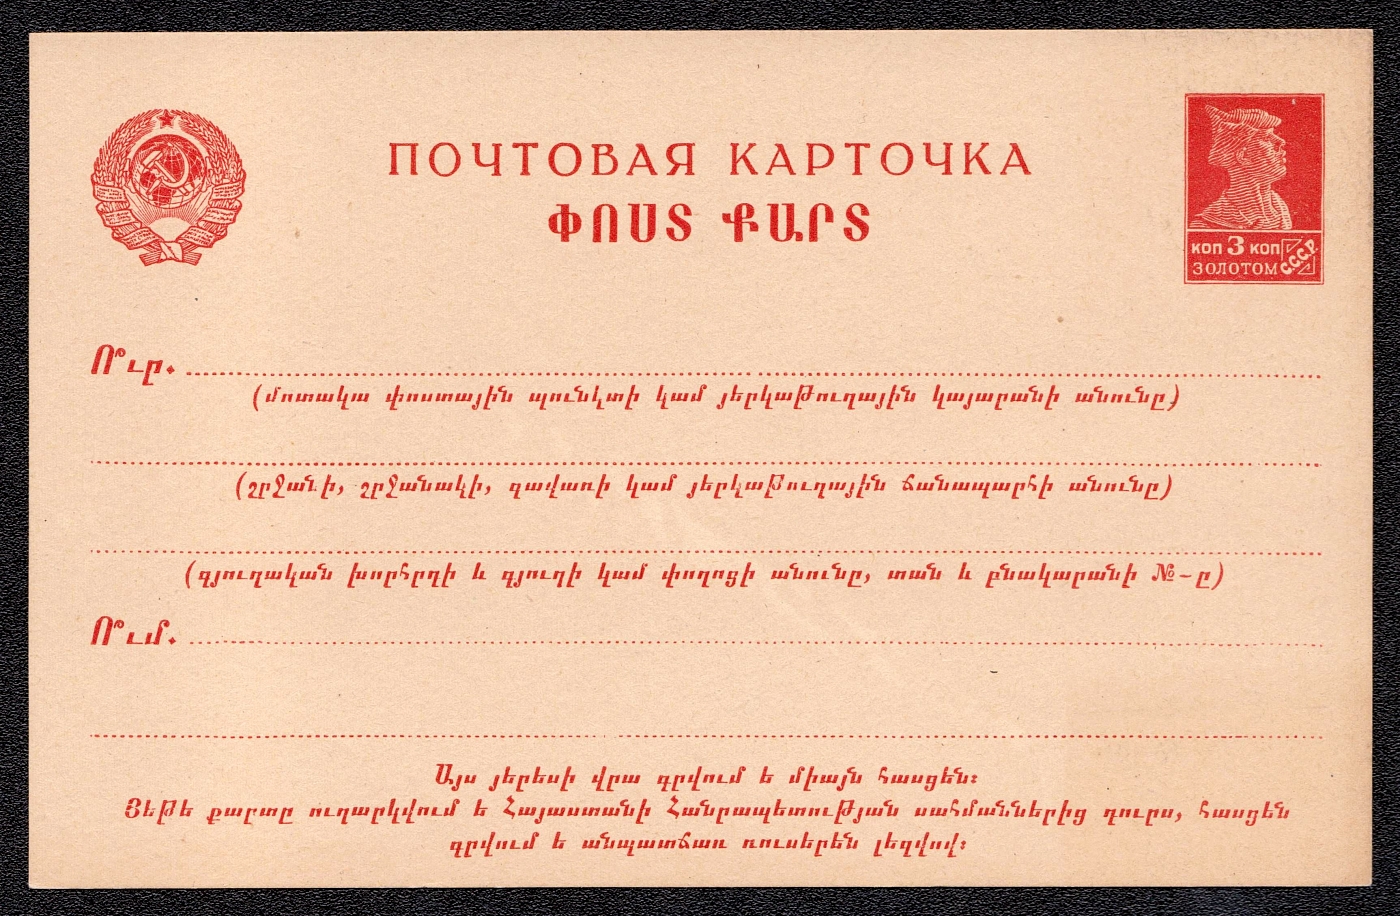 ПОЧТОВАЯ КАРТОЧКА
ՓՈՍՏ ՔԱՐՏ
КОП 3 КОП
ЗОЛОТОМ С.С.С.Р.
Ո՞ւր.
(մոտակա փոստային պունկտի կամ յերկաթուղային կայարանի անունը)
(շրջանի, շրջանակի, գավառի կամ յերկաթուղային ճանապարհի անունը)
(գյուղական խորհրդի և գյուղի կամ փողոցի անունը, տան և բնակարանի №-ը)
Ո՞ւմ.
Այս յերեսի վրա գրվում ե միայն հասցեն։
Յեթե քարտը ուղարկվում ե Հայաստանի Հանրապետության սահմաններից դուրս, հասցեն
գրվում ե անպատճառ ռուսերեն լեզվով։